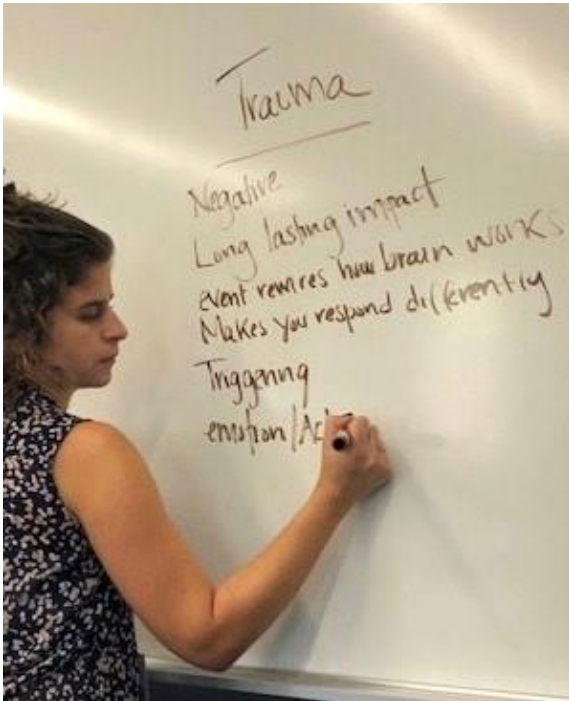 Trauma
Negative
Long lasting impact
event rewires how brain works
Makes you respond differently
Triggering
emotion/